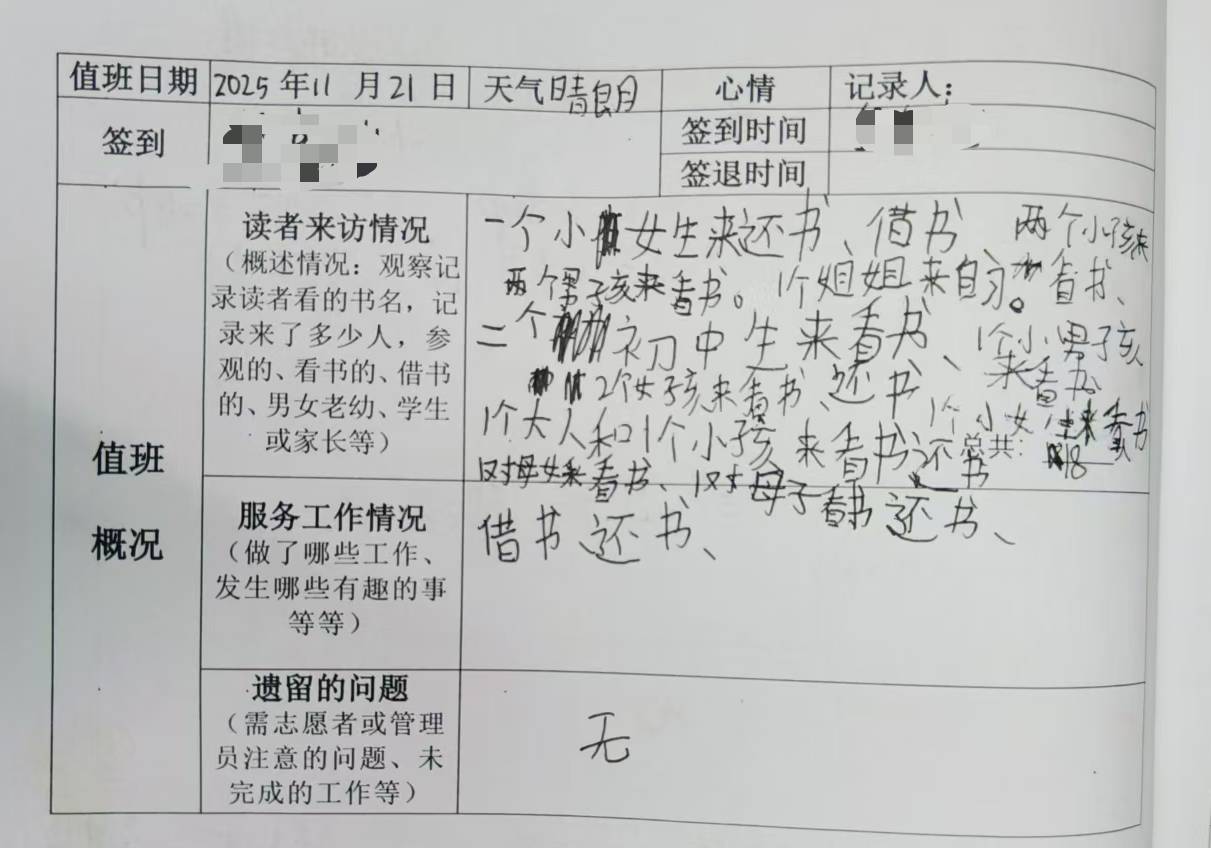 值班日期 2025年11月21日 天气晴朗 心情 记录人：
签到 签到时间
签退时间
值班
概况
读者来访情况
（概述情况：观察记
录读者看的书名，记
录来了多少人，参
观的、看书的、借书
的、男女老幼、学生
或家长等）
一个小女生来还书、借书 两个小孩来
看书、
两个男孩来看书。1个姐姐来自习。
二个初中生来看书、1个小男孩
来看书
2个女孩来看书、还书
1个大人和1个小孩来看书还书 1个小女生来看书
总共：18
1对母女来看书、1对母子看书还书、
服务工作情况
（做了哪些工作、
发生哪些有趣的事
等等）
借书还书、
遗留的问题
（需志愿者或管理
员注意的问题、未
完成的工作等）
无